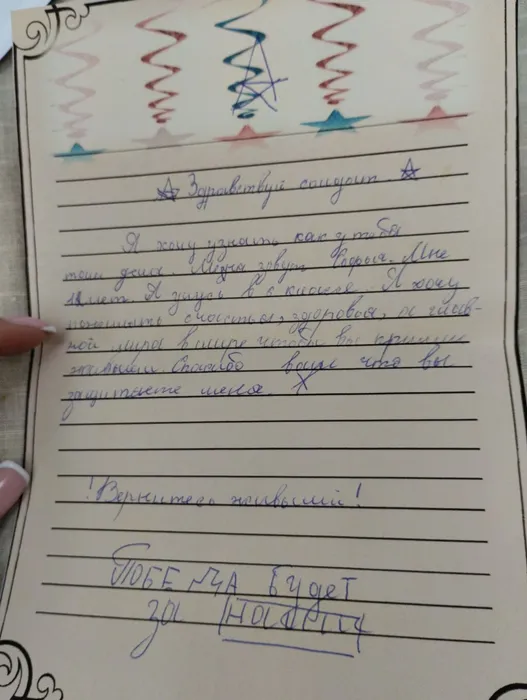 Здравствуй солдат.
Я хочу узнать как у тебя
там дела. Меня зовут Мне
лет. Я учусь в классе. Я хочу
пожелать счастья, здоровья, и глав-
ной мира в мире чтобы вы
живыми Спасибо вам что вы
защищаете меня.
! Вернитесь живыми !
ПОБЕДА БУДЕТ
ЗА НАМИ